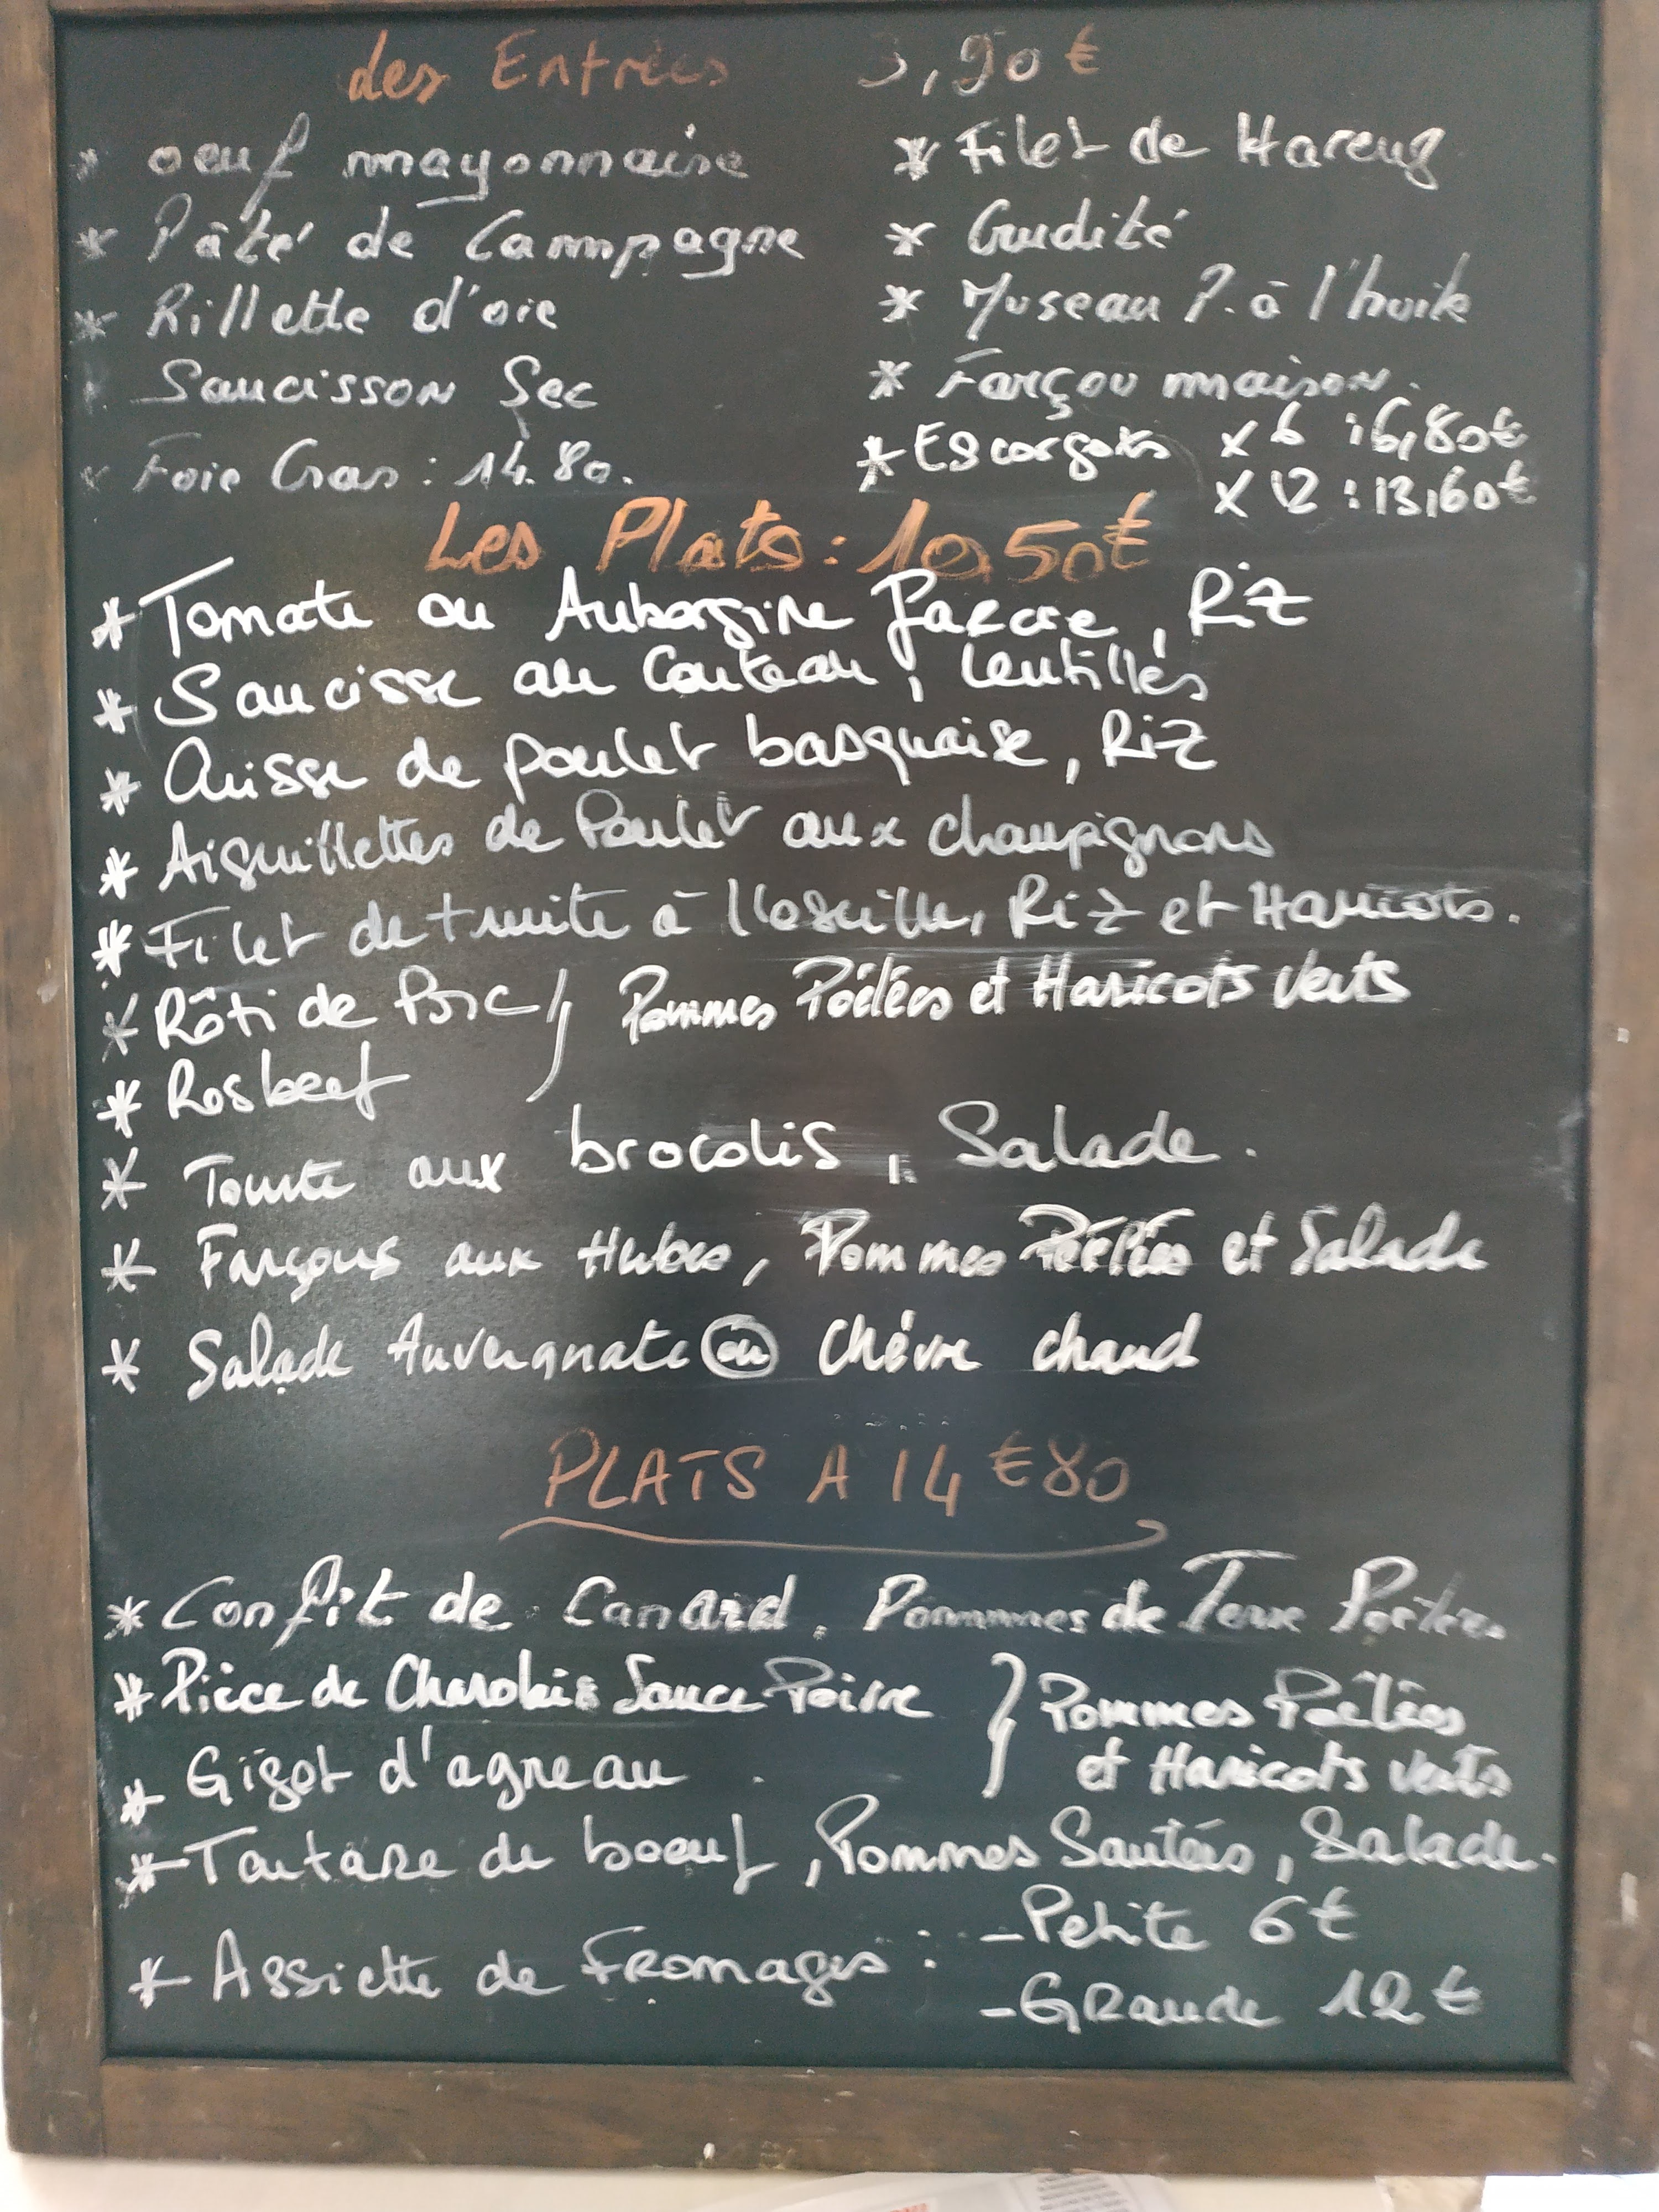 des Entrées 3,90€
* oeuf mayonnaise
* Pâté de Campagne
* Rillette d'oie
* Saucisson Sec
* Foie Gras : 14.80.
* Filet de Hareng
* Crudité
* Museau P. à l'huile
* Farçou maison.
* Escargots x 6 : 6,80€
x 12 : 13,60€
Les Plats : 10,50€
* Tomate ou Aubergine farcie, Riz
* Saucisse au Couteau, lentilles
* Cuisse de poulet basquaise, Riz
* Aiguillettes de Poulet aux champignons
* Filet de truite à l'oseille, Riz et Haricots.
* Rôti de Porc } Pommes Poêlées et Haricots verts
* Rosbeef
* Tourte aux brocolis, Salade.
* Farçous aux Herbes, Pommes Poêlées et Salade
* Salade Auvergnate ou Chèvre chaud
PLATS A 14€80
* Confit de Canard, Pommes de Terre Poêlées
* Pièce de Charolais Sauce Poivre } Pommes Poêlées
* Gigot d'agneau et Haricots verts
* Tartare de boeuf, Pommes Sautées, Salade.
* Assiette de Fromages : - Petite 6€
- Grande 12€